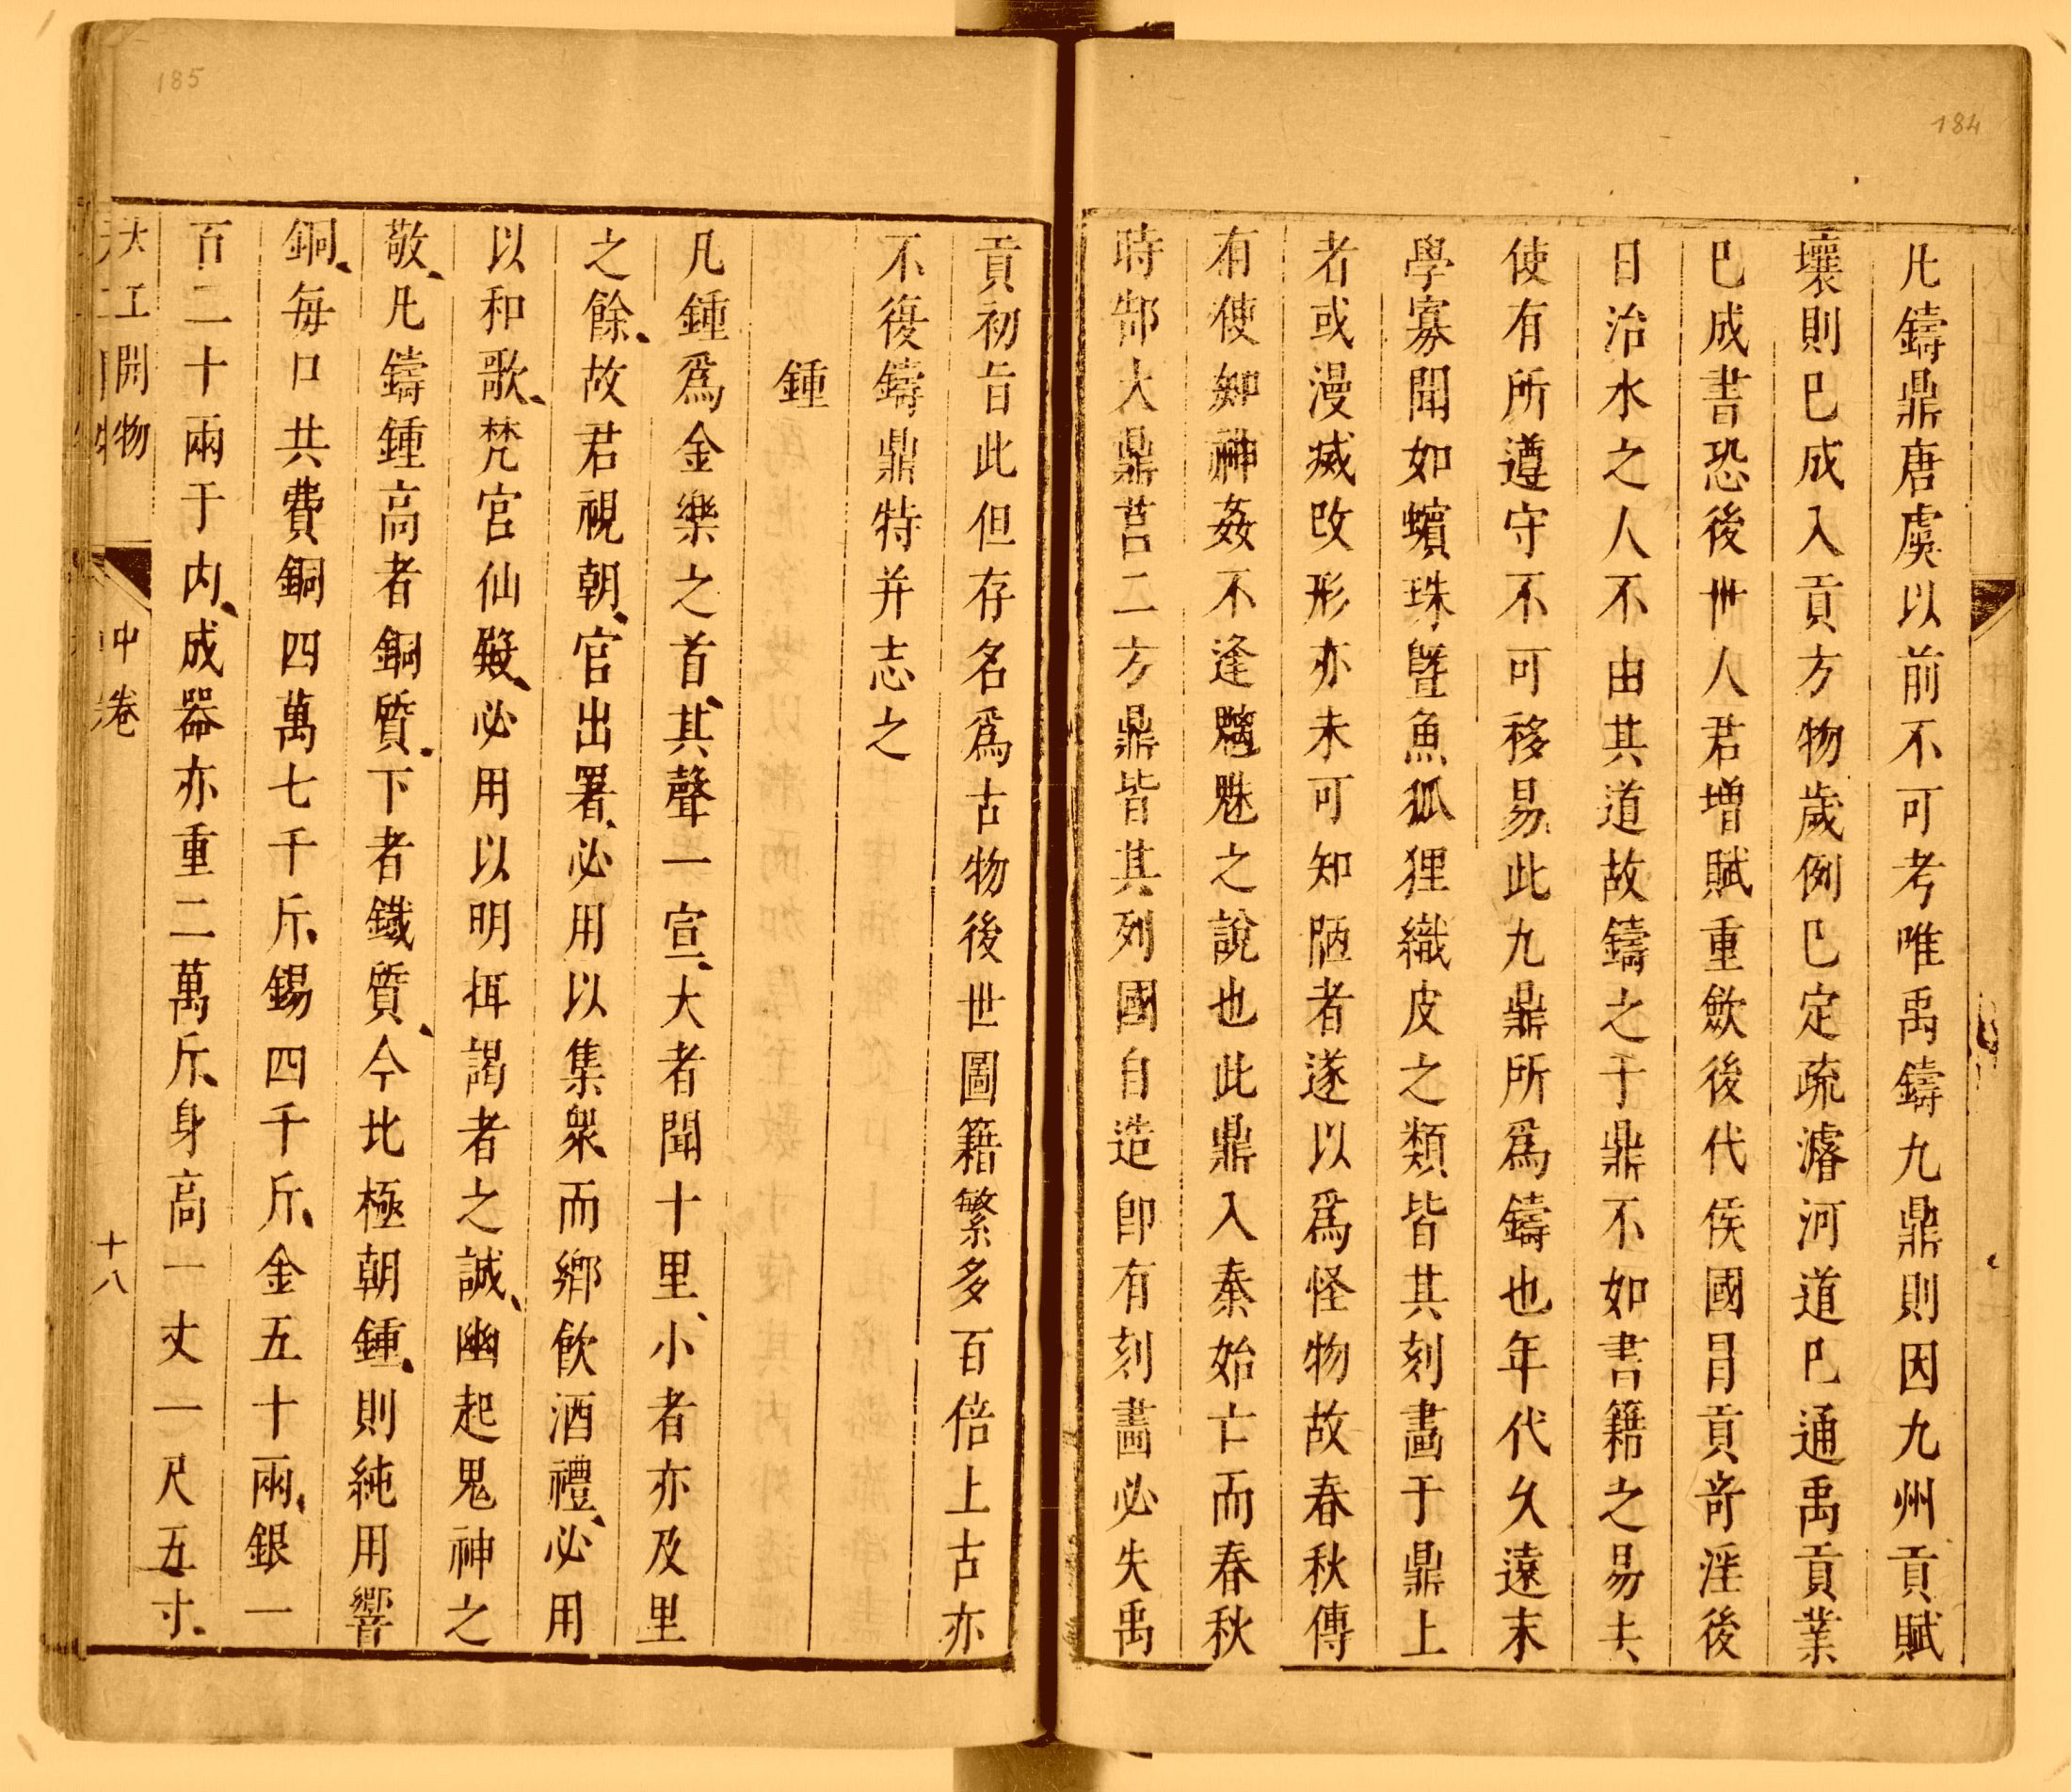 184
凡鑄鼎唐虞以前不可考唯禹鑄九鼎則因九州貢賦
壤則已成入貢方物歲例已定疏濬河道已通禹貢業
已成書恐後世人君增賦重歛後代侯國冒貢奇淫後
日治水之人不由其道故鑄之于鼎不如書籍之易去
使有所遵守不可移易此九鼎所爲鑄也年代久遠末
學寡聞如蠙珠曁魚狐狸織皮之類皆其刻畫于鼎上
者或漫㓕改形亦未可知陋者遂以爲怪物故春秋傳
有使知神姦不逢魑魅之說也此鼎入秦始亡而春秋
時郜大鼎莒二方鼎皆其列國自造卽有刻畫必失禹
185
貢初旨此但存名爲古物後世圖籍繁多百倍上古亦
不復鑄鼎特并志之
鍾
凡鍾爲金樂之首、其聲一宣、大者聞十里、小者亦及里
之餘、故君視朝、官出署、必用以集衆而鄉飮酒禮、必用
以和歌、梵宮仙殿、必用以明挕謁者之誠、幽起鬼神之
敬、凡鑄鍾高者銅質、下者鐵質、今北極朝鍾、則純用響
銅、每口共費銅四萬七千斤、錫四千斤、金五十兩、銀一
百二十兩于內、成器亦重二萬斤、身高一丈一尺五寸、
天工開物
中卷
十八